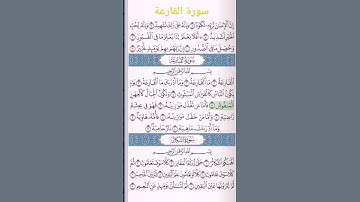 سورة القارعة
إِنَّ الْإِنسَٰنَ لِرَبِّهِۦ لَكَنُودٌ ۝ وَإِنَّهُۥ عَلَىٰ ذَٰلِكَ لَشَهِيدٌ ۝ وَإِنَّهُۥ لِحُبِّ
الْخَيْرِ لَشَدِيدٌ ۝ أَفَلَا يَعْلَمُ إِذَا بُعْثِرَ مَا فِي الْقُبُورِ ۝
وَحُصِّلَ مَا فِي الصُّدُورِ ۝ إِنَّ رَبَّهُم بِهِمْ يَوْمَئِذٍ لَّخَبِيرٌ ۝
سُورَةُ الْقَارِعَةِ
بِسْمِ اللَّهِ الرَّحْمَٰنِ الرَّحِيمِ
الْقَارِعَةُ ۝ مَا الْقَارِعَةُ ۝ وَمَا أَدْرَىٰكَ مَا الْقَارِعَةُ ۝
يَوْمَ يَكُونُ النَّاسُ كَالْفَرَاشِ الْمَبْثُوثِ ۝ وَتَكُونُ الْجِبَالُ كَالْعِهْنِ
الْمَنفُوشِ ۝ فَأَمَّا مَن ثَقُلَتْ مَوَٰزِينُهُۥ ۝ فَهُوَ فِي عِيشَةٍ
رَّاضِيَةٍ ۝ وَأَمَّا مَنْ خَفَّتْ مَوَٰزِينُهُۥ ۝ فَأُمُّهُۥ هَاوِيَةٌ ۝
وَمَا أَدْرَىٰكَ مَا هِيَهْ ۝ نَارٌ حَامِيَةٌ ۝
سُورَةُ التَّكَاثُرِ
بِسْمِ اللَّهِ الرَّحْمَٰنِ الرَّحِيمِ
أَلْهَىٰكُمُ التَّكَاثُرُ ۝ حَتَّىٰ زُرْتُمُ الْمَقَابِرَ ۝ كَلَّا سَوْفَ تَعْلَمُونَ ۝
ثُمَّ كَلَّا سَوْفَ تَعْلَمُونَ ۝ كَلَّا لَوْ تَعْلَمُونَ عِلْمَ الْيَقِينِ ۝ لَتَرَوُنَّ الْجَحِيمَ ۝
ثُمَّ لَتَرَوُنَّهَا عَيْنَ الْيَقِينِ ۝ ثُمَّ لَتُسْـَٔلُنَّ يَوْمَئِذٍ عَنِ النَّعِيمِ ۝